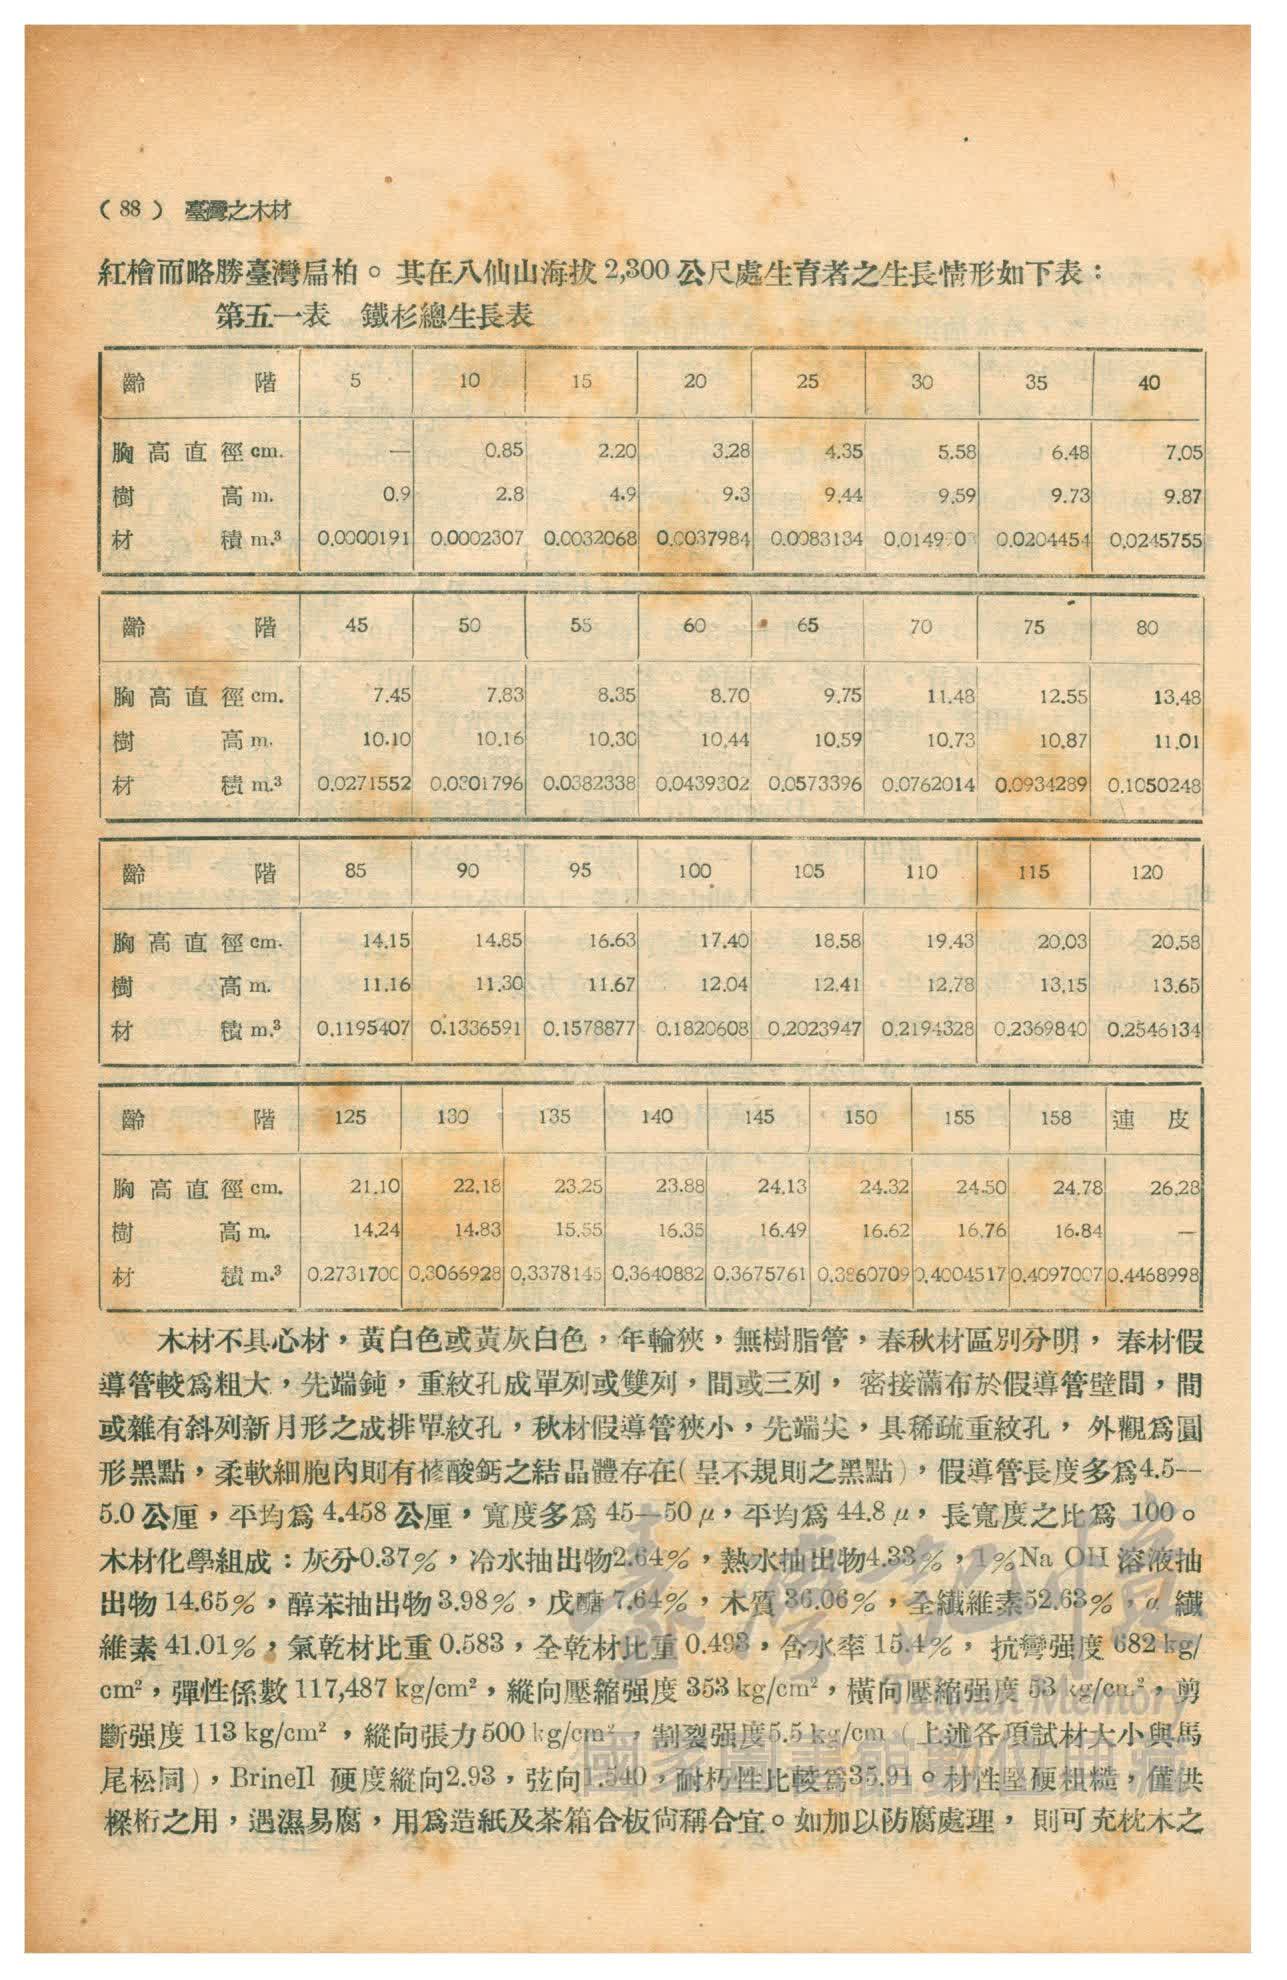 ( 88 ) 臺灣之木材
紅檜而略勝臺灣扁柏。其在八仙山海拔2,300公尺處生育者之生長情形如下表：
第五一表　鐵杉總生長表
齡　階 5 10 15 20 25 30 35 40
胸高直徑cm. — 0.85 2.20 3.28 4.35 5.58 6.48 7.05
樹　高m. 0.9 2.8 4.9 9.3 9.44 9.59 9.73 9.87
材　積m.³ 0.0000191 0.0002307 0.0032068 0.0037984 0.0083134 0.0204454 0.0245755
齡　階 45 50 55 60 65 70 75 80
胸高直徑cm. 7.45 7.83 8.35 8.70 9.75 11.48 12.55 13.48
樹　高m. 10.10 10.16 10.30 10.44 10.59 10.73 10.87 11.01
材　積m.³ 0.0271552 0.0301796 0.0382338 0.0439302 0.0573396 0.0762014 0.0934289 0.1050248
齡　階 85 90 95 100 105 110 115 120
胸高直徑cm. 14.15 14.85 16.63 17.40 18.58 19.43 20.03 20.58
樹　高m. 11.16 11.30 11.67 12.04 12.41 12.78 13.15 13.65
材　積m.³ 0.1195407 0.1336591 0.1578877 0.1820608 0.2023947 0.2194328 0.2369840 0.2546134
齡　階 125 130 135 140 145 150 155 158 連　皮
胸高直徑cm. 21.10 22.18 23.25 23.88 24.13 24.32 24.50 24.78 26.28
樹　高m. 14.24 14.83 15.55 16.35 16.49 16.62 16.76 16.84 —
材　積m.³ 0.2731700 0.3066928 0.3378145 0.3640882 0.3675761 0.3860709 0.4004517 0.4097007 0.4468998
木材不具心材，黃白色或黃灰白色，年輪狹，無樹脂管，春秋材區別分明，春材假
導管較爲粗大，先端鈍，重紋孔成單列或雙列，間或三列，密接滿布於假導管壁間，間
或雜有斜列新月形之成排單紋孔，秋材假導管狹小，先端尖，具稀疏重紋孔，外觀爲圓
形黑點，柔軟細胞內則有蓚酸鈣之結晶體存在(呈不規則之黑點)，假導管長度多爲4.5—
5.0公厘，平均爲4.458公厘，寬度多爲45—50μ，平均爲44.8μ，長寬度之比爲100。
木材化學組成：灰分0.37%，冷水抽出物2.64%，熱水抽出物4.33%，1%Na OH溶液抽
出物14.65%，醇苯抽出物3.98%，戊醣7.64%，木質36.06%，全纖維素52.63%，α纖
維素41.01%，氣乾材比重0.583，全乾材比重0.493，含水率15.4%，抗彎强度682kg/
cm²，彈性係數117,487kg/cm²，縱向壓縮强度353kg/cm²，橫向壓縮强度53kg/cm²，剪
斷强度113kg/cm²，縱向張力500kg/cm²，割裂强度5.5kg/cm（上述各項試材大小與馬
尾松同)，Brinell 硬度縱向2.93，弦向1.540，耐朽性比較爲35.91。材性堅硬粗糙，僅供
樑桁之用，遇濕易腐，用爲造紙及茶箱合板尙稱合宜。如加以防腐處理，則可充枕木之
臺灣記憶
Taiwan Memory
國家圖書館數位典藏